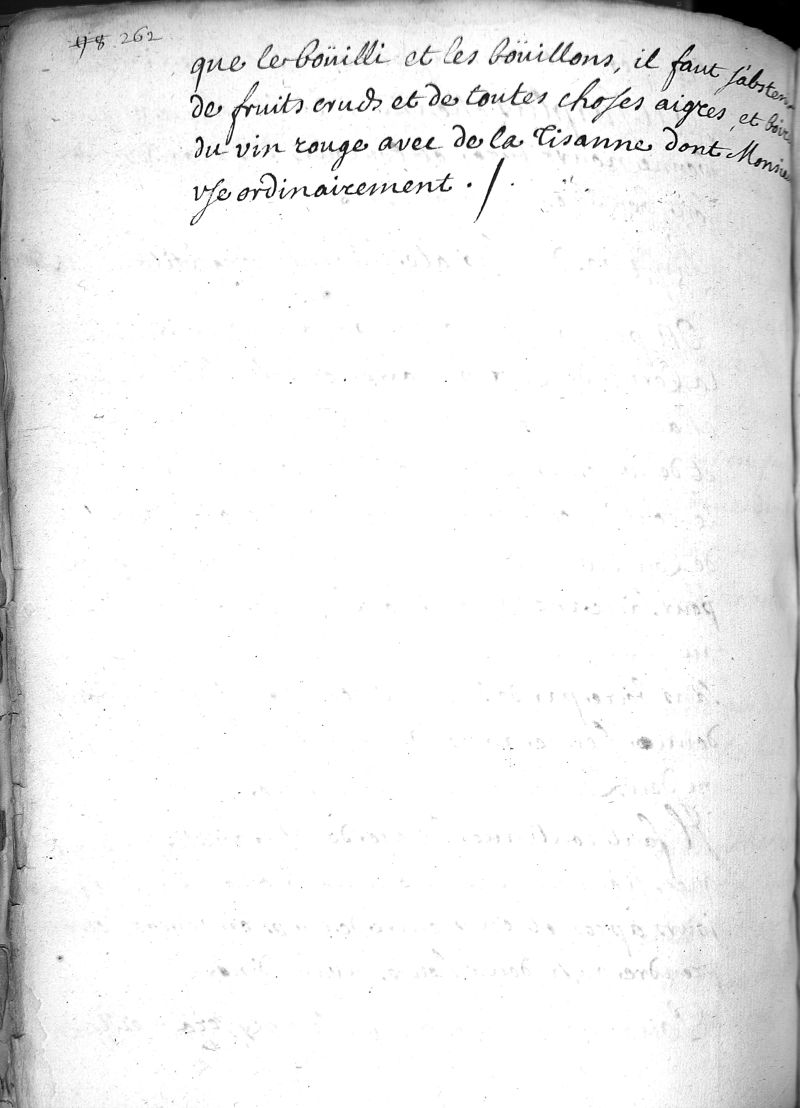 98 262
que le boüilli et les boüillons, il faut s'absten
de fruits cruds et de toutes choses aigres, et boire
du vin rouge avec de la Tisanne dont Monsie
vse ordinairement . / .